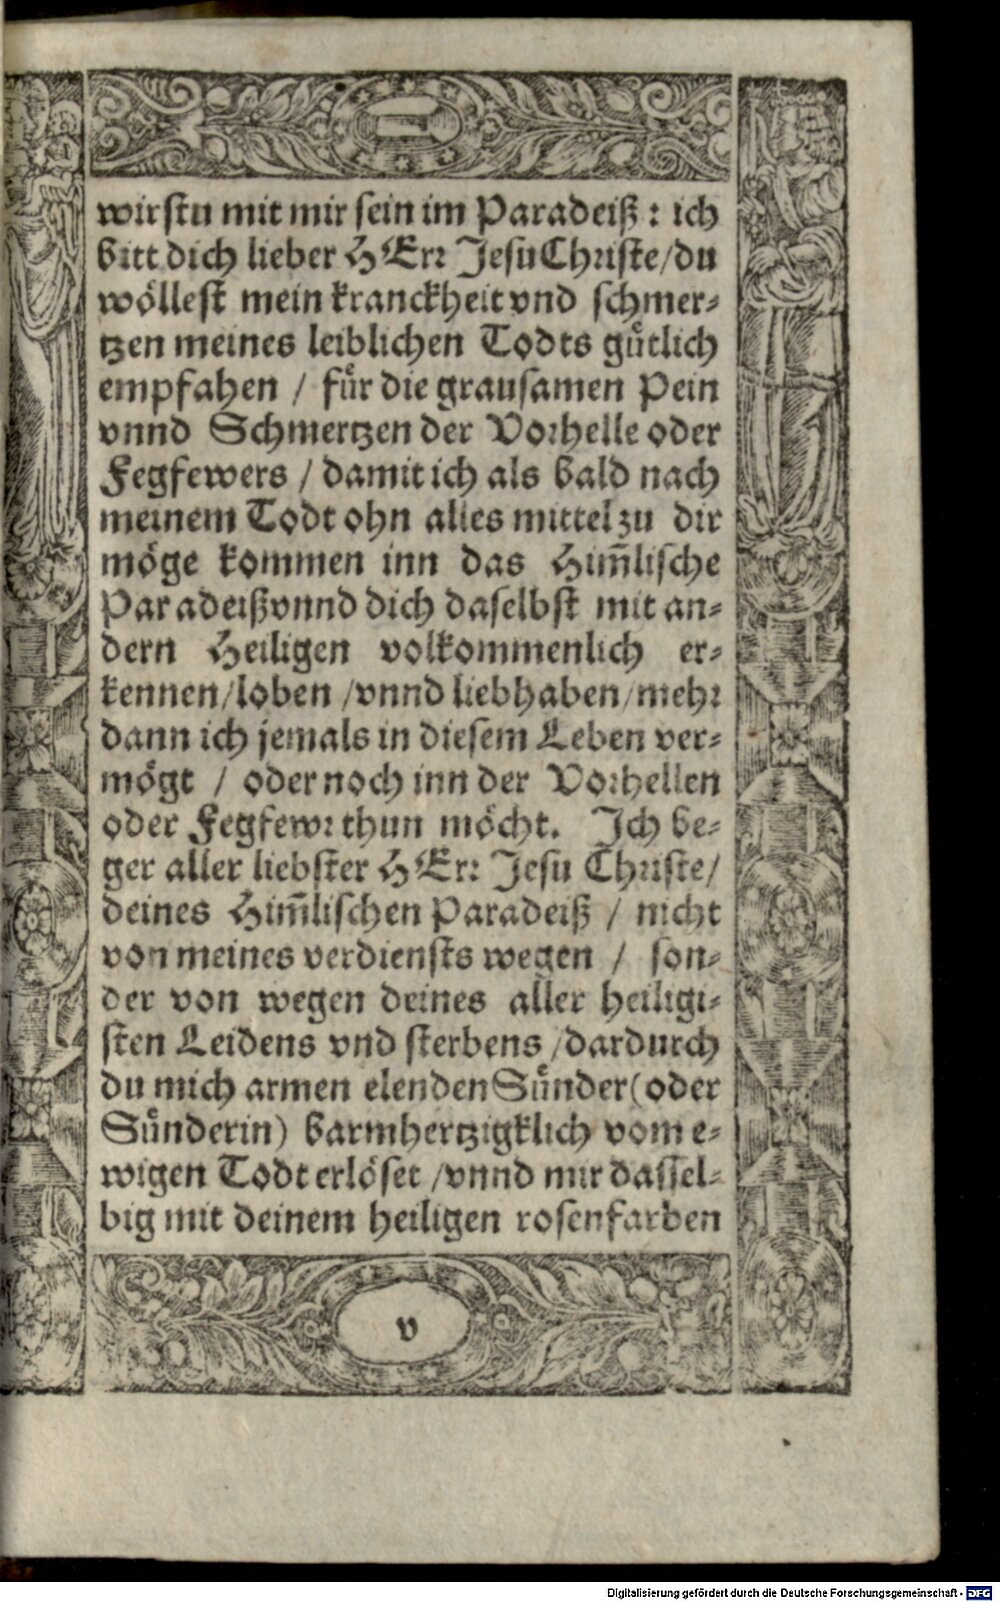 wirstu mit mir sein im Paradeiß : ich
bitt dich lieber HErr Jesu Christe/du
wöllest mein kranckheit vnd schmer-
tzen meines leiblichen Todts guͤtlich
empfahen / fuͤr die grausamen Pein
vnnd Schmertzen der Vorhelle oder
Fegfewers / damit ich als bald nach
meinem Todt ohn alles mittel zu dir
möge kommen inn das Him̃lische
Paradeiß vnnd dich daselbst mit an-
dern Heiligen volkommenlich er-
kennen/loben /vnnd liebhaben/mehr
dann ich jemals in diesem Leben ver-
mögt / oder noch inn der Vorhellen
oder Fegfewr thun möcht. Ich be-
ger aller liebster HErr Jesu Christe/
deines Him̃lischen Paradeiß / nicht
von meines verdiensts wegen / son-
der von wegen deines aller heiligi-
sten Leidens vnd sterbens /dardurch
du mich armen elenden Suͤnder(oder
Suͤnderin) barmhertzigklich vom e-
wigen Todt erlöset /vnnd mir dassel-
big mit deinem heiligen rosenfarben
v
Digitalisierung gefördert durch die Deutsche Forschungsgemeinschaft - DFG